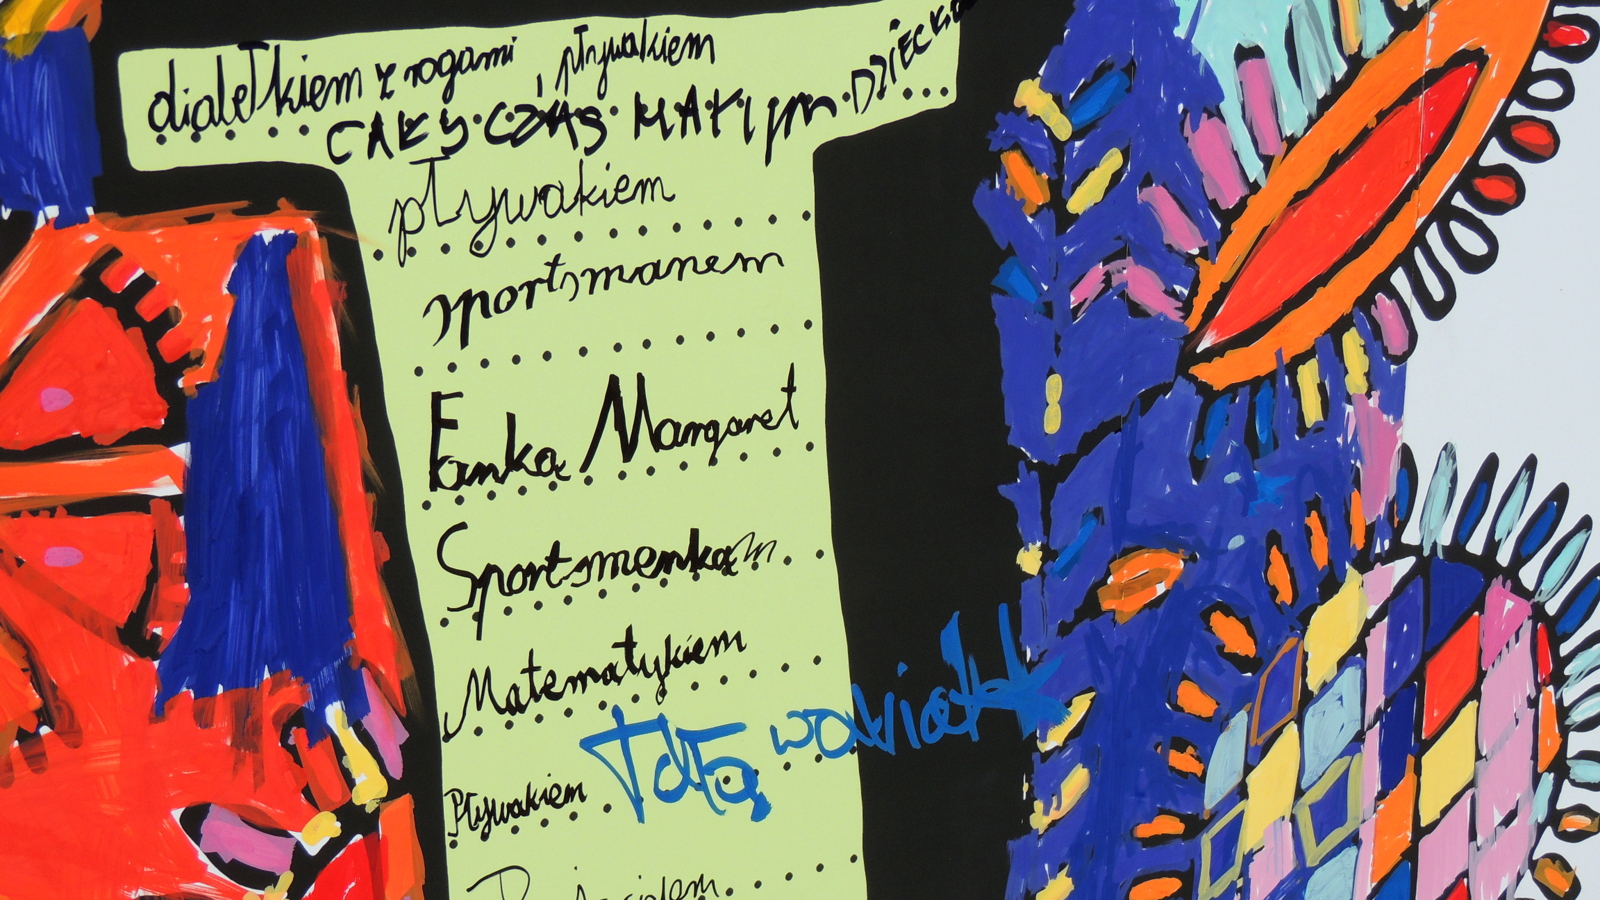 diabełkiem z rogami i pływakiem
CAŁY CZAS MAŁYM DZIECKIEM
pływakiem
sportsmanem
Fanką Margaret
Sportsmenką
Matematykiem
Pływakiem